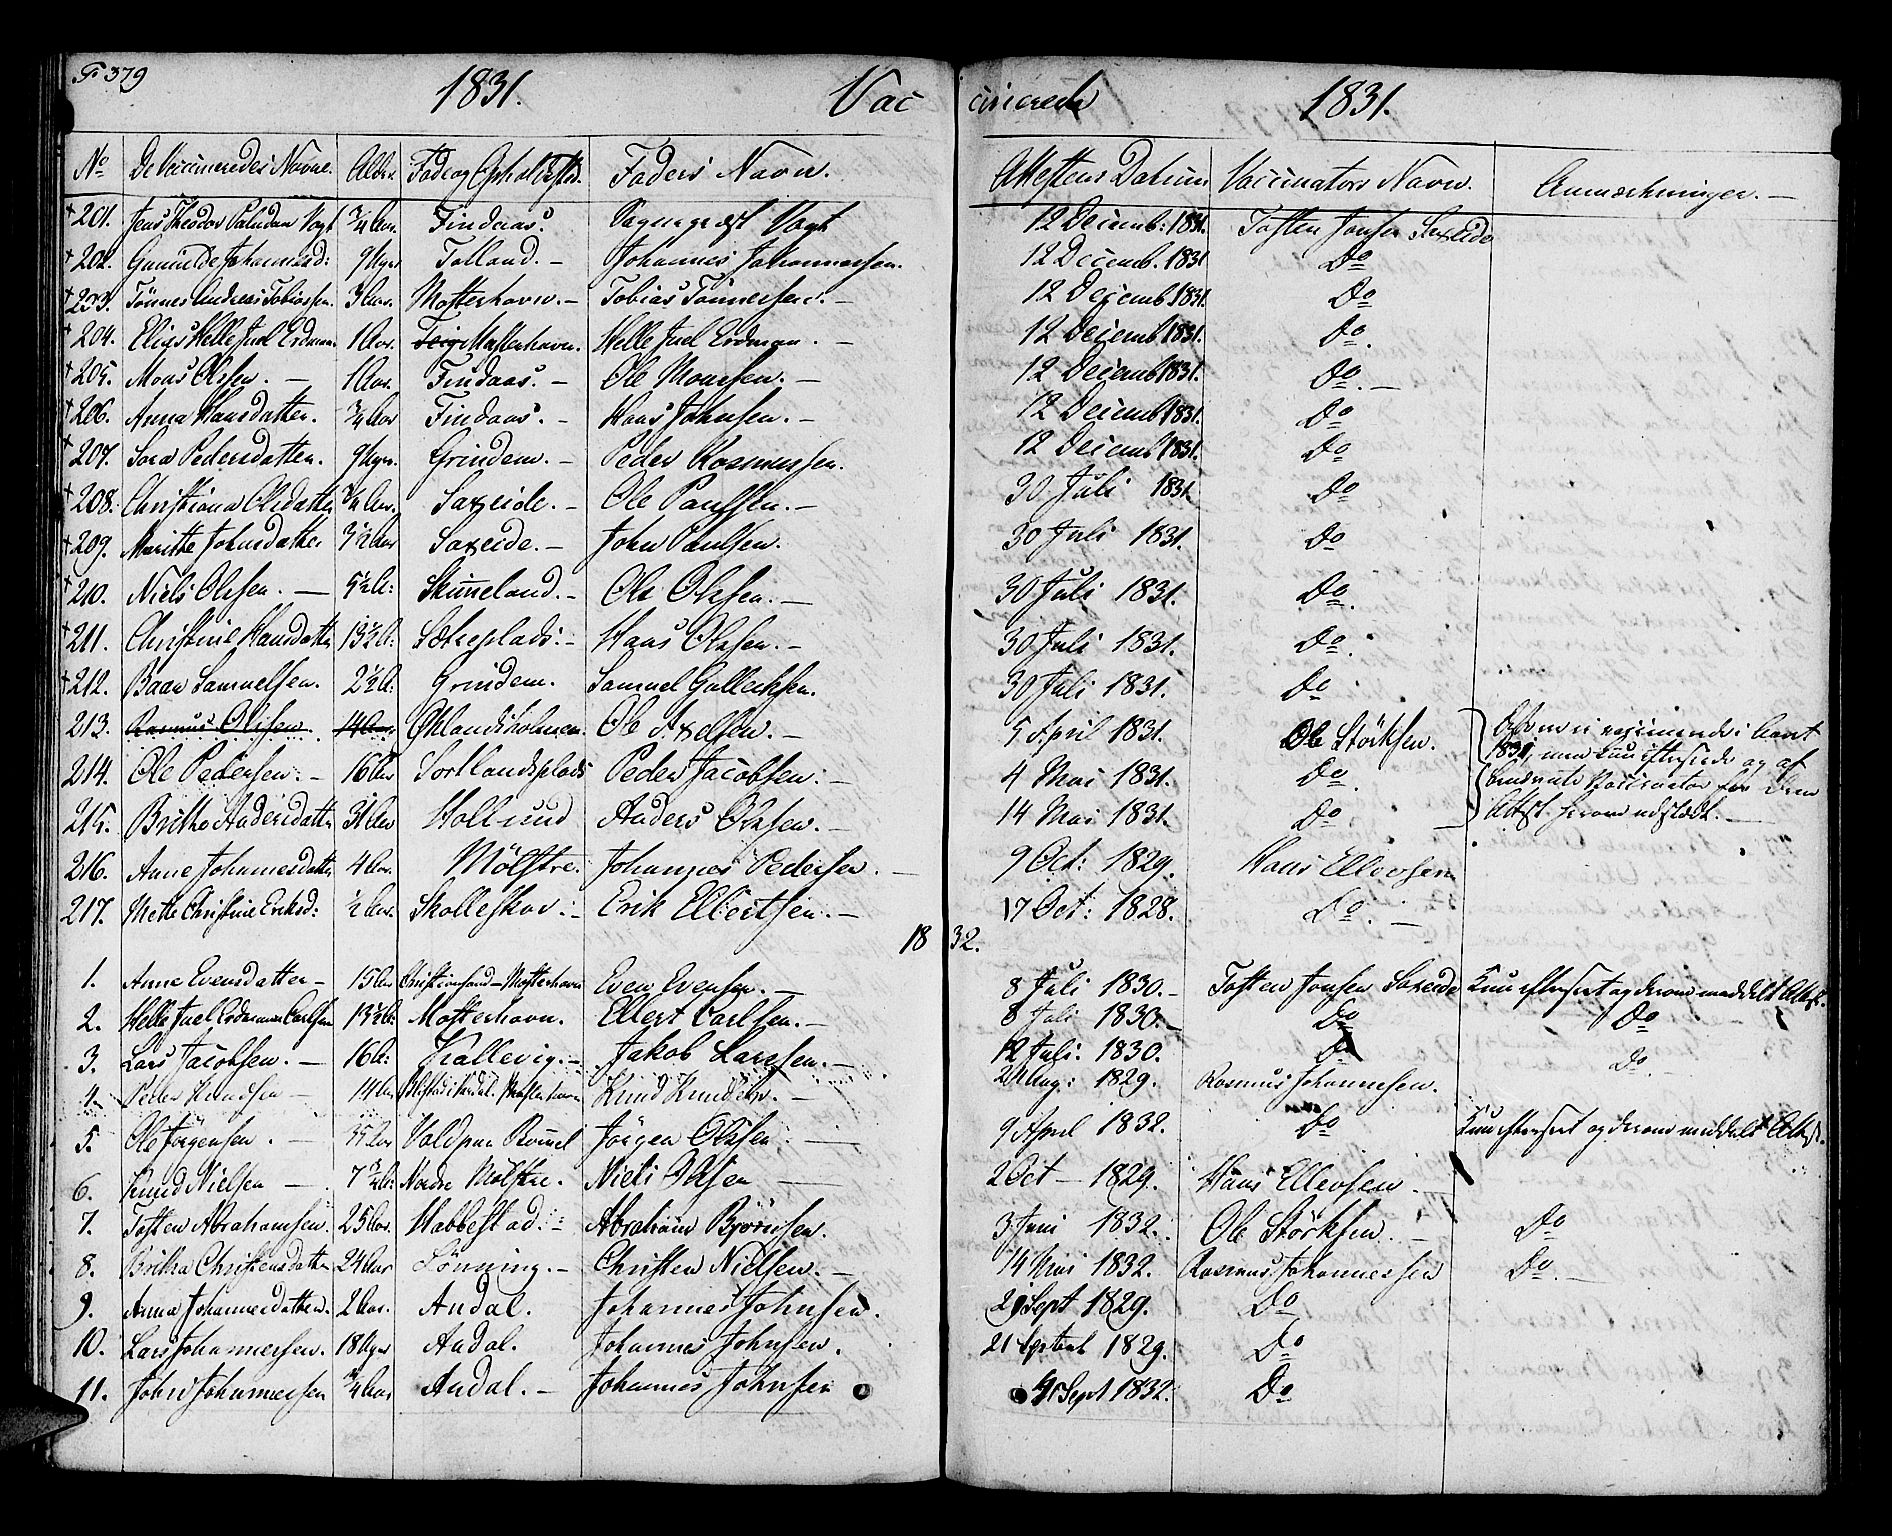 F. 379
1831. Vaccinerede 1831.
No De Vaccineredes Navne. Alder Føde og Opholdssted. Faders Navn. Attestens Datum Vaccinators Navn. Anmærkninger. —
+ 201. Jens Theodor Paludan Vogt 3/4 Aar. Findaas. Sognepræst Vogt 12 Decemb: 1831. Tosten Jonsen Saxeide
+ 202. Gunnilde Johannesd: 9 Uger Folland. — Johannes Johannessen. 12 Decemb. 1831 Do
+ 203. Tönnes Andreas Tobiassen. 3 Aar. Mosterhavn. — Tobias Tönnessen. — 12 Decemb 1831. Do
+ 204. Elias Helle Juel Erdman. 1 Aar. Mosterhavn. Helle Juel Erdman. — 12 Decemb 1831. Do.
+ 205. Mons Olssen. — 1 Aar. Findaas. — Ole Monssen. — 12 Decemb 1831. Do. —
+ 206. Anna Hansdatter. 3/4 Aar Findaas. — Hans Johnsen. — 12 Decemb 1831. Do
+ 207. Sara Pedersdatter. 9 Uger. Grindem. — Peder Rasmussen. 12 Decemb 1831. Do
+ 208. Christiana Olsdatter 3/4 Aar. Saxeide. — Ole Paulsen. — 30 Juli 1831. Do
+ 209. Maritte Johnsdatter 3 1/2 Aar Saxeide. — John Paulsen. 30 Juli 1831. Do
+ 210. Niels Olssen. — 5 1/2 A: Skimeland. — Ole Olssen. — 30 Juli 1831. Do.
+ 211. Christine Hansdatter 13 1/2 A: Sætreplads: — Hans Olssen. — 30 Juli 1831. Do.
+ 212. Baar Samuelsen. 2 1/2 A: Grindem. Samuel Gullecksen. 30 Juli 1831. Do
213. Rasmus Olssen. 14 Aar Øklandsholmen. Ole Axelsen. — 5 April 1831. Ole Störksen. { Disse ere vaccinerede i Aaret
214. Ole Pedersen. — 16 Aar Sortlandsplads Peder Jacobsen: — 4 Mai 1831. Do. 1831, men kun eftersete og af
215. Britha Andersdatter 31 Aar Hollund Anders Olssen. — 14 Mai 1831. Do — Vaccinator for dem Attest herom udstædt. —
216. Anne Johannesdatter 4 Aar. Mölstre. Johannes Pedersen. — 9 Oct: 1829. Hans Ellevsen
217. Mette Christine Eriksd: 1/2 Aar. Skolleskar. — Erik Ellertsen. — 17 Oct: 1828. Do. —
1832.
1. Anne Evensdatter — 15 Aar Christiansund — Mosterhavn Even Evensen. — 8 Juli 1830. — Tosten Jonsen Saxeide Kun efterseet og derom meddelt Attest.
2. Helle Juel Erdman Carlsen 13 1/2 A: Mosterhavn. Ellert Carlsen. — 8 Juli 1830. — Do Do
3. Lars Jacobsen. — 16 A: Kallevig. — Jakob Larssen. — 12 Juli. 1830. Do Do. —
4. Peder Knudsen — 14 Aar Mosterhavn Knud Knudsen. — Aug: 1829. Rasmus Johannesen.
5. Ole Jörgensen. — 35 Aar Voldsund Bömel Jörgen Olssen — 9 April 1832. Do Kun efterseet og derom meddelt Attest.
6. Knud Nielsen — 7 1/2 A: Nordre Mölstre. Niels Olsen — 2 Oct — 1829. Hans Ellevsen.
7. Tosten Abrahamsen. 25 Aar. Habbestad: — Abraham Bjørnsen. 3 Juni 1832. Ole Störksen. — Do
8. Britha Christensdatter 24 Aar Lönning. — Christen Nielsen. — 14 Mai 1832. Rasmus Johannessen Do. —
9. Anna Johannesdatter. 2 Aar. Andal. Johannes Johnsen. 21 Sept 1829. Do
10. Lars Johannessen. 18 Uger Andal. Johannes Johnsen. 21 Septemb 1829. Do
11. John Johannessen 3/4 Aar Andal. — Johannes Johnsen Sept 1832. Do